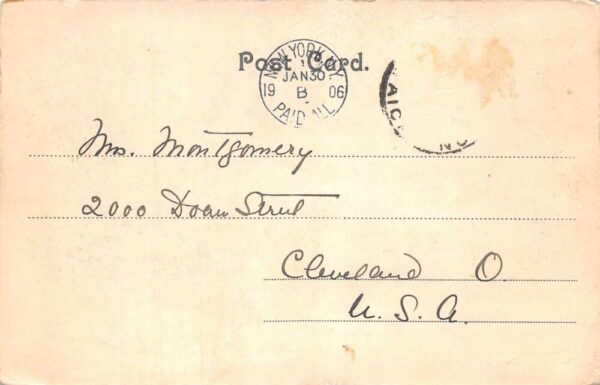 Post Card.
NEW YORK, N.Y.
1
JAN 30
19 B 06
PAID ALL
Mrs. Montgomery
2000 Doan Street
Cleveland O.
U. S. A.